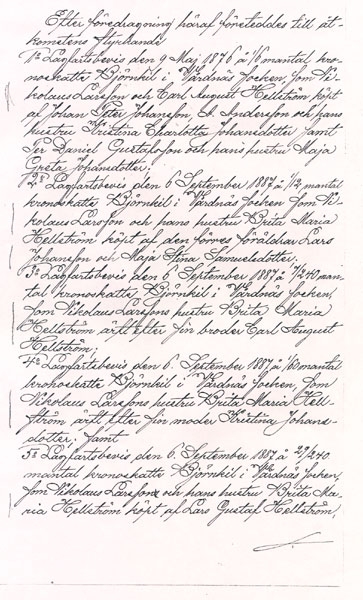 Efter föredragning häraf företeddes till åt-
komstens styrkande
1º Lagfartsbevis den 9 Maj 1876 å 1/6 mantal kro-
noskatte Björnkil i Vårdnäs socken, som Ni-
kolaus Larsson och Carl August Hellström köpt
af Johan Peter Johansson, A. Andersson och hans
hustru Kristina Charlotta Johansdotter samt
Per Daniel Gustafsson och hans hustru Maja
Greta Johansdotter;
2º Lagfartsbevis den 6 September 1887 å 1/12 mantal
kronoskatte Björnkil i Vårdnäs socken, som Ni-
kolaus Larsson och hans hustru Brita Maria
Hellström köpt af den förres föräldrar Lars
Johansson och Maja Stina Samuelsdotter;
3º Lagfartsbevis den 6 September 1887 å 7/240 man-
tal kronoskatte Björnkil i Vårdnäs socken,
som Nikolaus Larssons hustru Brita Maria
Hellström ärft efter sin broder Carl August
Hellström;
4º Lagfartsbevis den 6 September 1887 å mantal
kronoskatte Björnkil i Vårdnäs socken, som
Nikolaus Larssons hustru Brita Maria Hell-
ström ärft efter sin moder Kristina Johans-
dotter; samt
5º Lagfartsbevis den 6 September 1887 å 21/240
mantal kronoskatte Björnkil i Vårdnäs socken,
som Nikolaus Larsson och hans hustru Brita Ma-
ria Hellström köpt af Lars Gustaf Hellström,